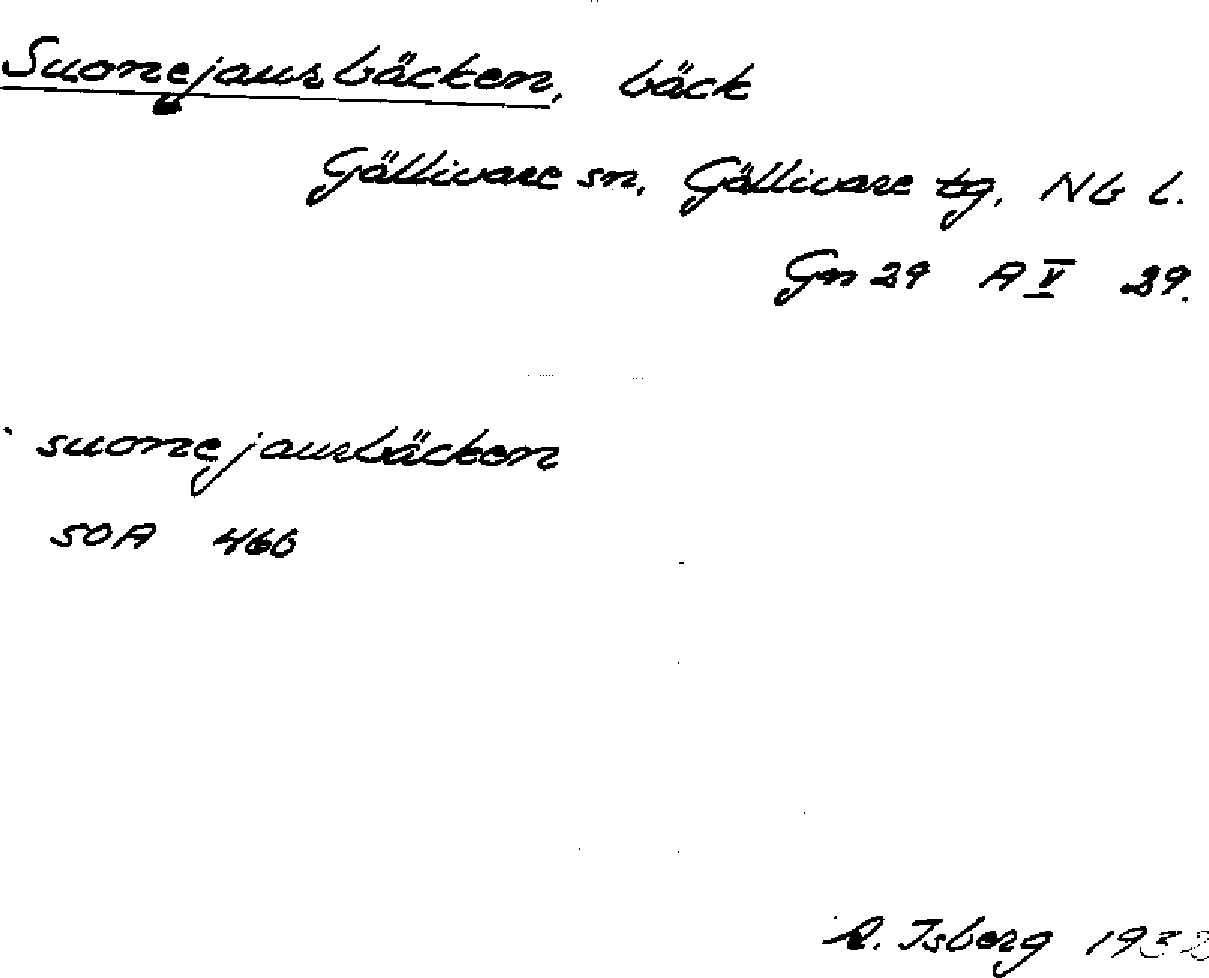 Suonejaurbäcken, bäck
Gällivare sn, Gällivare tg, NB L.
Gn 29 A V 29.
suonejaurbäcken
SOA 466
R. Isberg 1932